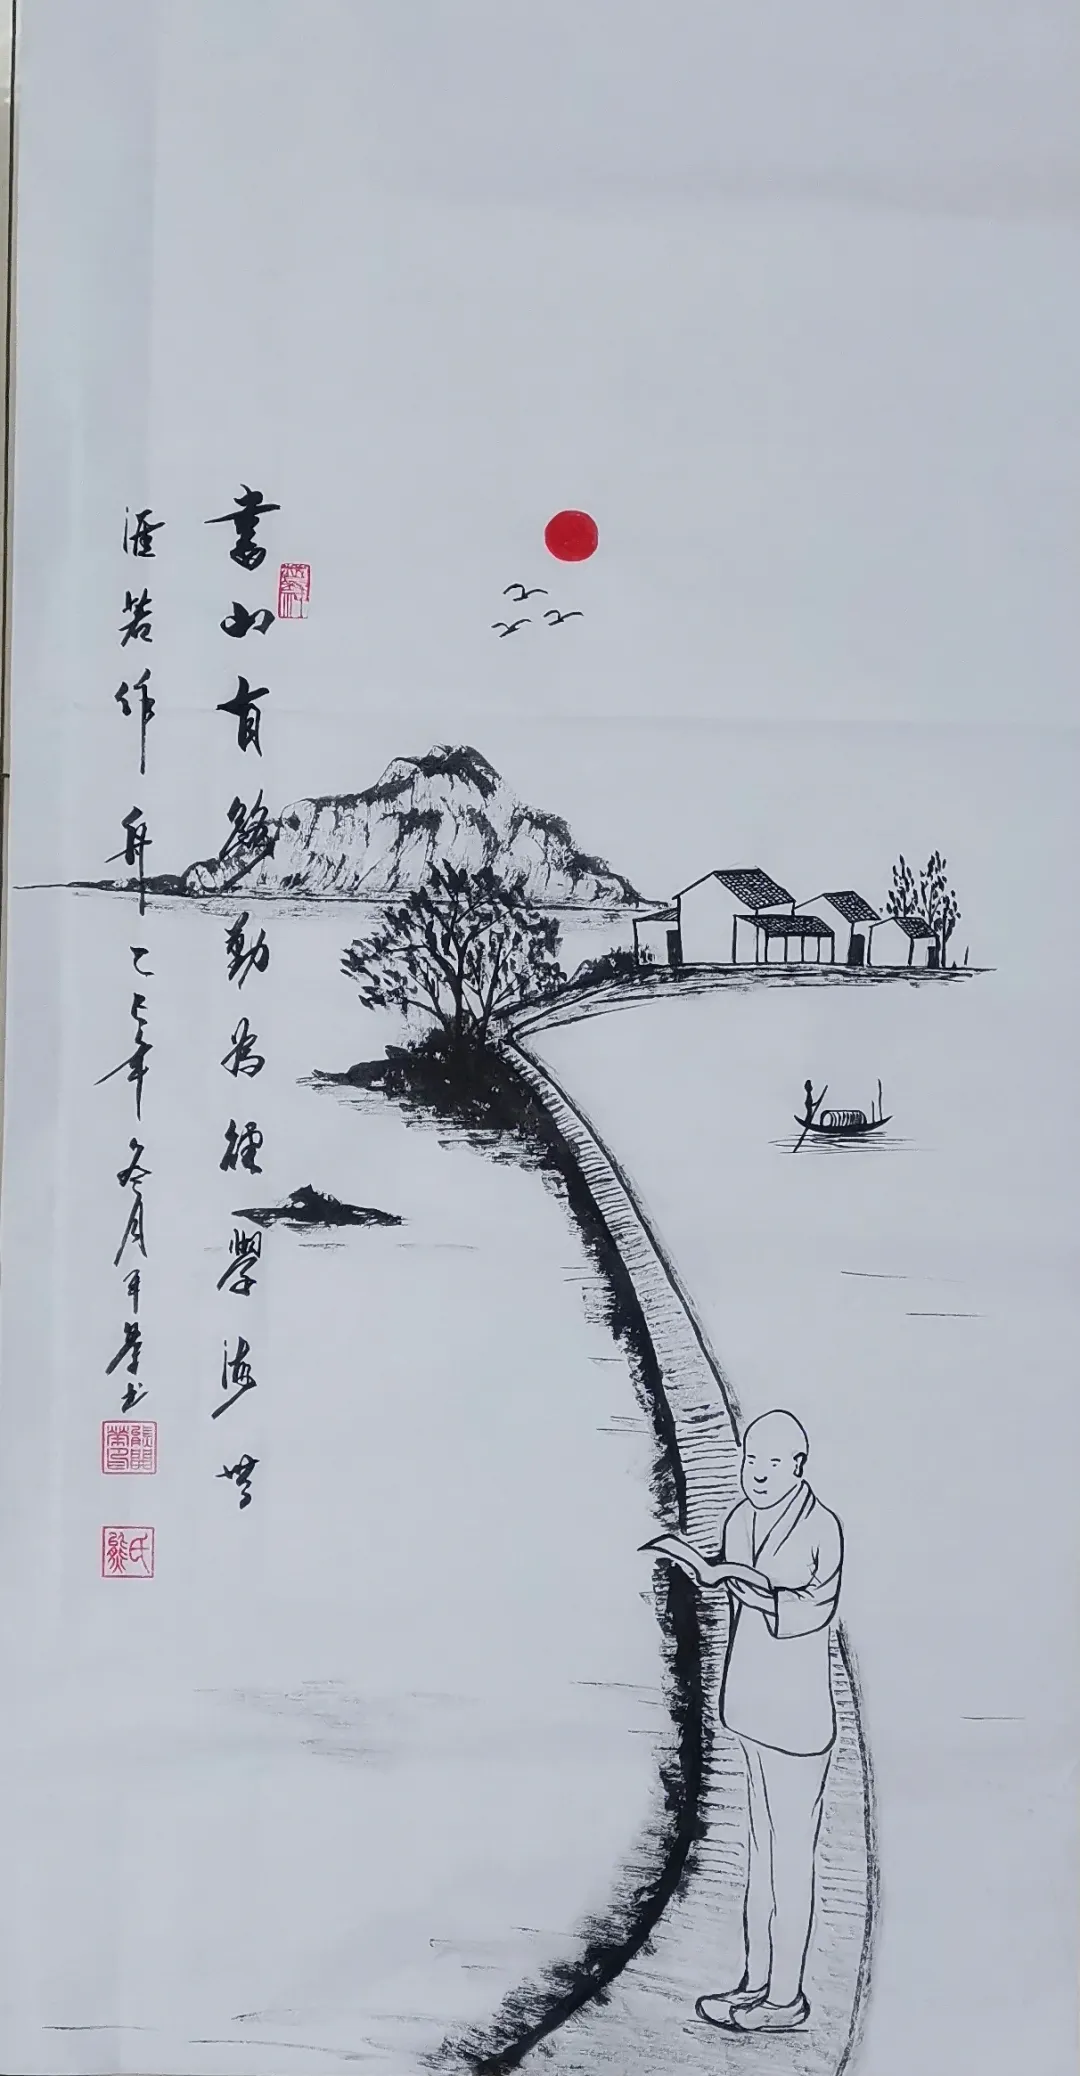 書山有路勤為徑學海無
涯苦作舟乙巳年冬月平榮书
熊氏